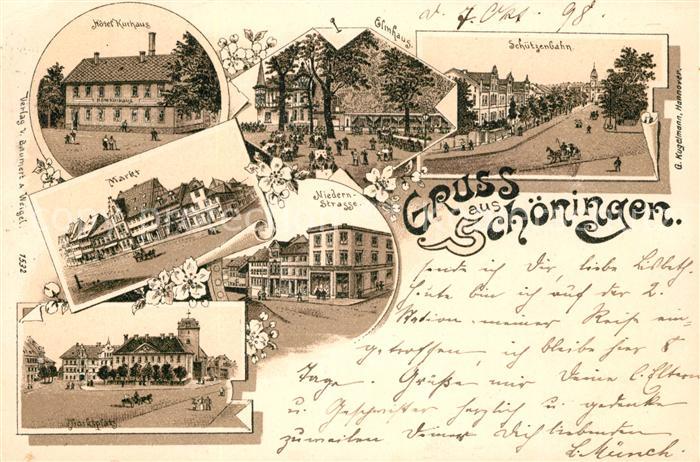 d. 7. Okt. 98.
Hôtel Kurhaus
Elmhaus.
Schützenbahn.
Verlag v. Baumert & Weigel.
1522
G. Kugelmann, Hannover.
Markt
Niedern-
Strasse.
Gruss
aus
Schöningen.
Marktplatz
sende ich Dir, liebe Lisbeth
Heute bin ich auf der 2.
Station meiner Reise ein-
getroffen, ich bleibe hier 8
Tage. Grüße mir Deine l. Eltern
u. Geschwister herzlich u. gedenke
zuweilen Deiner Dich liebenden
L. Münch.